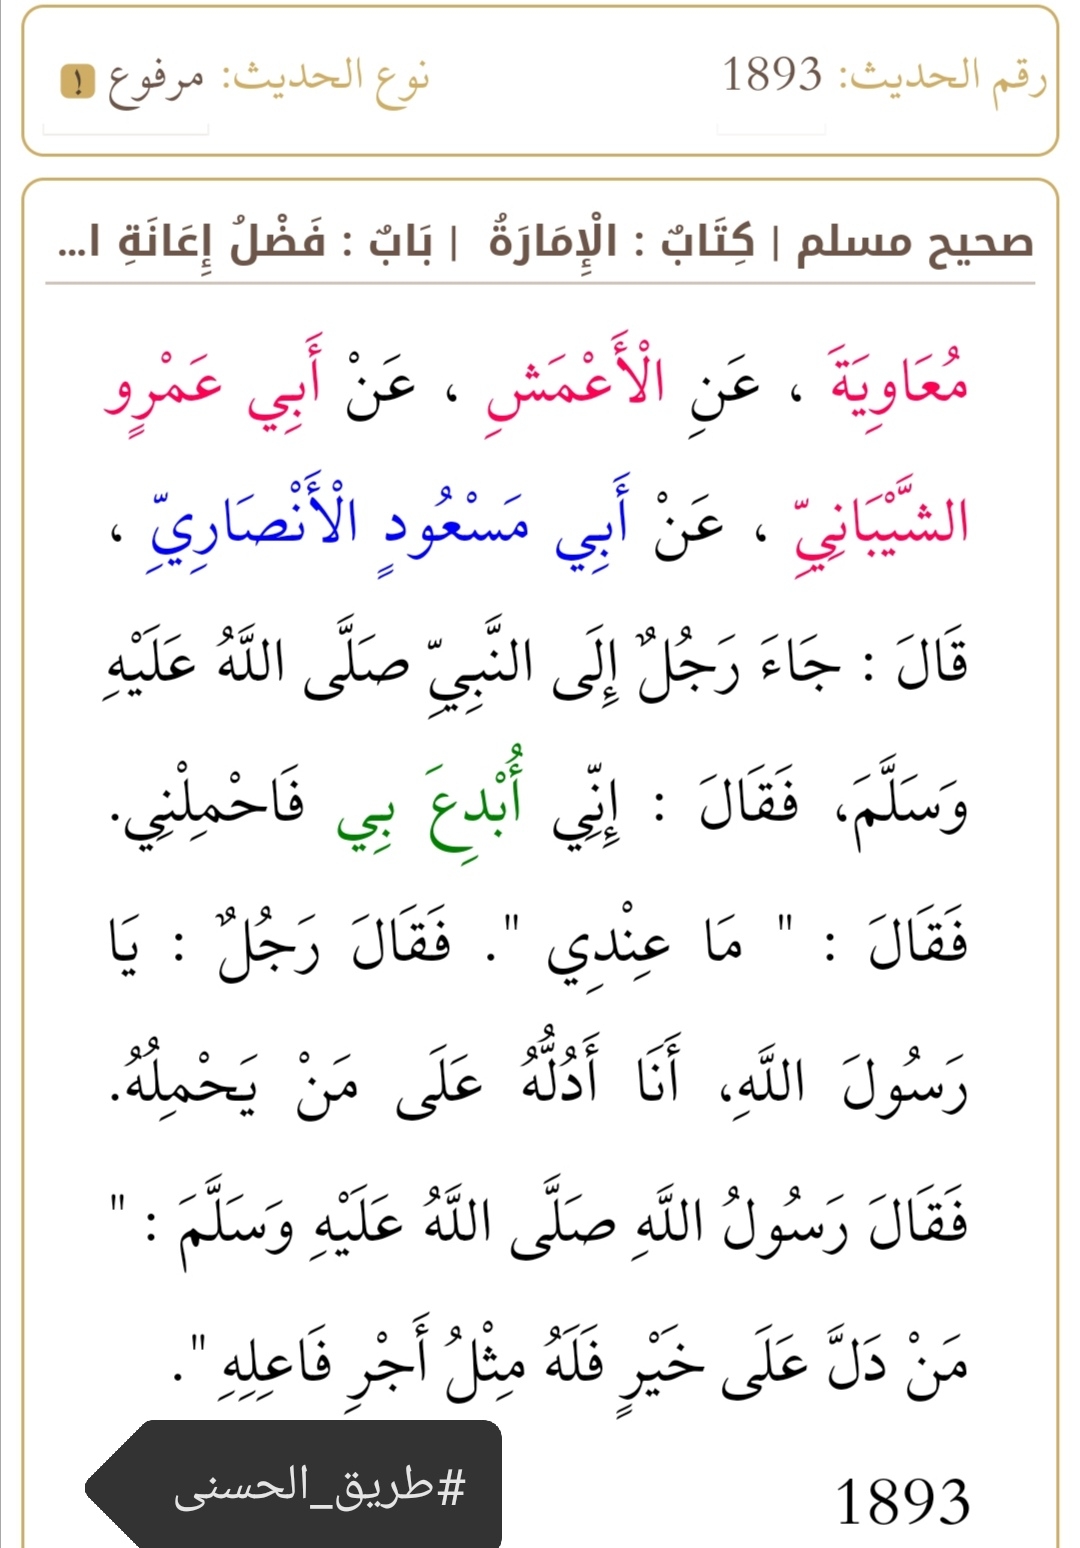 رقم الحديث: 1893 نوع الحديث: مرفوع
صحيح مسلم | كِتَابٌ : الْإِمَارَةُ | بَابٌ : فَضْلُ إِعَانَةِ ا...
مُعَاوِيَةَ ، عَنِ الْأَعْمَشِ ، عَنْ أَبِي عَمْرٍو
الشَّيْبَانِيِّ ، عَنْ أَبِي مَسْعُودٍ الْأَنْصَارِيِّ ،
قَالَ : جَاءَ رَجُلٌ إِلَى النَّبِيِّ صَلَّى اللَّهُ عَلَيْهِ
وَسَلَّمَ، فَقَالَ : إِنِّي أُبْدِعَ بِي فَاحْمِلْنِي.
فَقَالَ : " مَا عِنْدِي ". فَقَالَ رَجُلٌ : يَا
رَسُولَ اللَّهِ، أَنَا أَدُلُّهُ عَلَى مَنْ يَحْمِلُهُ.
فَقَالَ رَسُولُ اللَّهِ صَلَّى اللَّهُ عَلَيْهِ وَسَلَّمَ : "
مَنْ دَلَّ عَلَى خَيْرٍ فَلَهُ مِثْلُ أَجْرِ فَاعِلِهِ ".
1893
#طريق_الحسنى